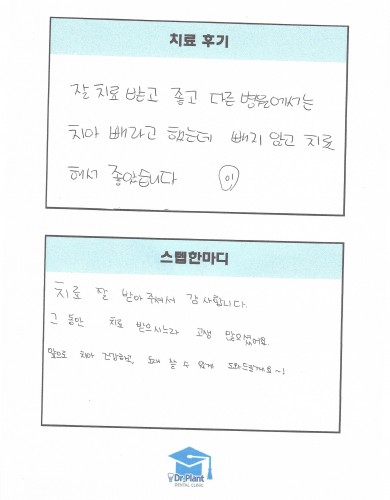 치료 후기
잘 치료 받고 좋고 다른 병원에서는
치아 빼라고 했는데 빼지 않고 치료
해서 좋았습니다
스탭한마디
치료 잘 받아 주셔서 감사합니다.
그 동안 치료 받으시느라 고생 많으셨어요
앞으로 치아 건강하고, 오래 쓸 수 있게 도와드릴게요~!
Dr.Plant
DENTAL CLINIC